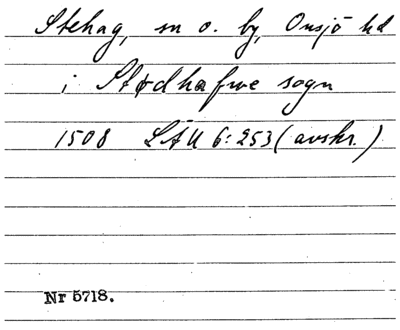 Stehag, sn o. by, Onsjö hd
i Stødhafwe sogn
1508 LÄU 6:253 (avskr.)
Nr 5718.